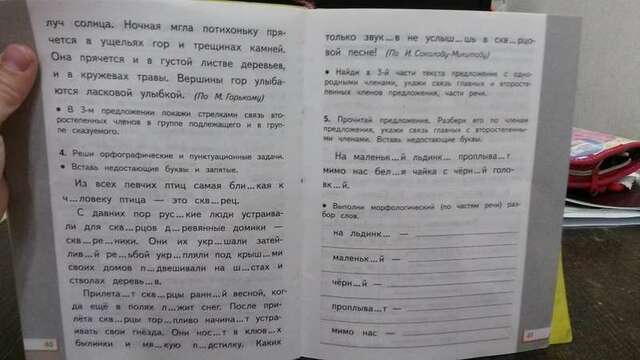 луч солнца. Ночная мгла потихоньку пря-
чется в ущельях гор и трещинах камней.
Она прячется и в густой листве деревьев,
и в кружевах травы. Вершины гор улыба-
ются ласковой улыбкой. (По М. Горькому)
• В 3-м предложении покажи стрелками связь вто-
ростепенных членов в группе подлежащего и в груп-
пе сказуемого.
4. Реши орфографические и пунктуационные задачи.
• Вставь недостающие буквы и запятые.
Из всех певчих птиц самая бли...кая к
ч...ловеку птица — это скв...рец.
С давних пор рус...кие люди устраива-
ли для скв...рцов д...ревянные домики —
скв...ре...ники. Они их укр...шали затей-
лив...й ре...ьбой укр...пляли под крыш...ми
своих домов п...двешивали на ш...стах и
стволах деревь...в.
Прилета...т скв...рцы ранн...й весной, ког-
да ещё в полях л...жит снег. После при-
лёта скв...рцы тор...пливо начина...т устра-
ивать свои гнёзда. Они нос...т в клюв...х
былинки и мя...кую п...дстилку. Каких
40
только звук...в не услыш...шь в скв...рцо-
вой песне! (По И. Соколову-Микитову)
• Найди в 3-й части текста предложение с одно-
родными членами, укажи связь главных и второсте-
пенных членов предложения, части речи.
5. Прочитай предложение. Разбери его по членам
предложения, укажи связь главных с второстепенны-
ми членами. Вставь недостающие буквы.
На маленьк...й льдинк... проплыва...т
мимо нас бел...я чайка с чёрн...й голо-
вк...й.
• Выполни морфологический (по частям речи) раз-
бор слов.
на льдинк... —
маленьк...й —
чёрн...й —
проплыва...т —
мимо нас —
41